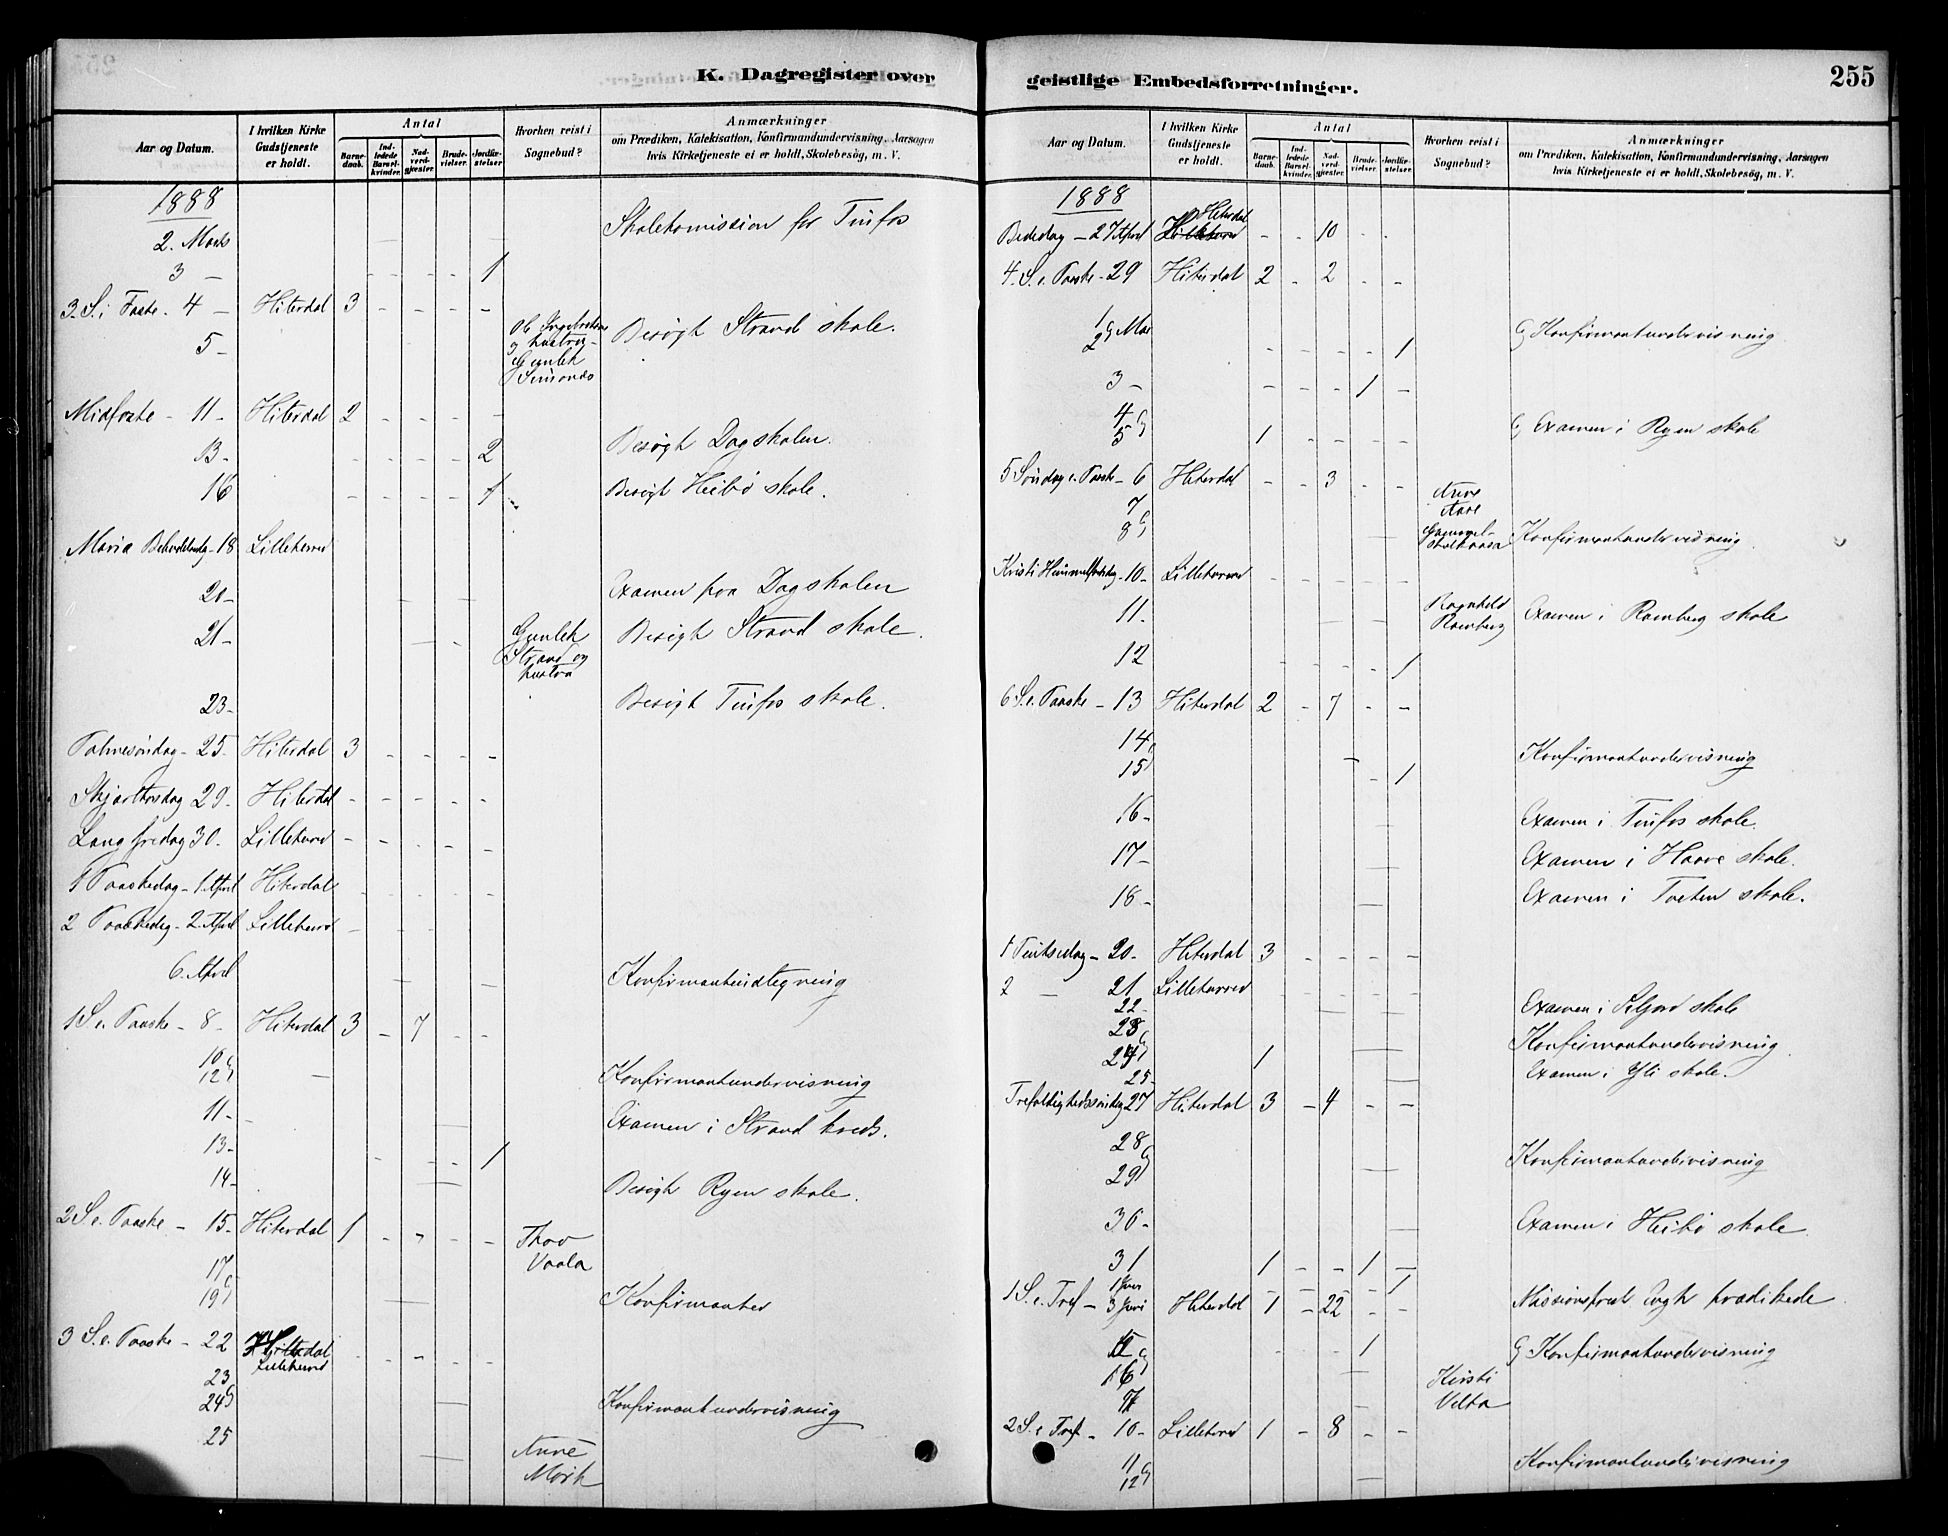 K. Dagregister over geistlige Embedsforretninger.
255
Aar og Datum.
I hvilken Kirke Gudstjeneste er holdt.
Antal
Barnedaab.
Indledede Barselkvinder.
Nadverdgjester.
Brudevielser.
Jordfæstelser
Hvorhen reist i Sognebud?
Anmærkninger
om Prædiken, Katekisation, Konfirmandundervisning, Aarsagen
hvis Kirketjeneste ei er holdt, Skolebesög, m. V.
1888
2. Marts Skolekomission for Tinfos
3 - - - - - 1
3. S. i Faste. 4 - Hiterdal 3 - - - -
5 - og hustru - Gunlek Besøgt Strand skole.
Midfaste - 11 - Hiterdal 2 - - - -
13 - - - - - 2 Besøgt Dagskolen.
16 - - - - 1 Besøgt Heibø skole.
Maria Bebudelsesdag - 18 Lilleherred
20 - Examen paa Dagskolen
21 - Gunlek Strand og hustru Besøgt Strand skole.
23 - Besøgt Tinfos skole.
Palmesöndag - 25 - Hiterdal 3 - - - -
Skjærthorsdag 29 - Hiterdal - - - - -
Langfredag 30. Lilleherred - - - - -
1 Paaskedag - 1. April Hiterdal - - - - -
2 Paaskedag - 2. April Lilleherred - - -
6. April Konfirmantindtegning
1 S. e. Paaske - 8 - Hiterdal 3 - 7 - -
10 og 12 - Konfirmantundervisning
11 - Examen i Strand kreds.
13 - - - - 1
14 - Besøgt Ryen skole.
2 S. e. Paaske - 15 - Hiterdal 1 - - - - Thov Vaala
17 og 19 Konfirmanter
3 S. e. Paaske - 22 Hiterdal Lilleherred - - - - -
23
24 Konfirmantundervisning
25 Anne Mork
Aar og Datum.
I hvilken Kirke Gudstjeneste er holdt.
Antal
Barnedaab.
Indledede Barselkvinder.
Nadverdgjester.
Brudevielser.
Jordfæstelser.
Hvorhen reist i Sognebud?
Anmærkninger
om Prædiken, Katekisation, Konfirmandundervisning, Aarsagen
hvis Kirketjeneste ei er holdt, Skolebesög, m. V.
1888
Bededag - 27 April Lilleherred Hiterdal - - 10 - -
4. S. e. Paaske - 29 Hiterdal 2 - 2 - -
1 og 2 Mai - - - - 1 Konfirmantundervisning
3 - - - - 1 -
4 og 5 1 - - - - Examen i Ryen skole
5 Søndag e. Paaske - 6 Hiterdal - - 3 - -
7 og 8 Anne Konfirmantundervisning
Kristi Himmelfartsdag - 10 - Lilleherred - - - - -
11. Ragnhild Ramberg Examen i Ramberg skole
12 - - - - 1
6 S. e. Paaske - 13 Hiterdal 2 - 7 - -
14 og 15 - 1 Konfirmantundervisning
16 - Examen i Tinfos skole
17 - Examen i Haave skole.
18 - Examen i Tveten skole.
1 Pintsedag - 20 - Hiterdal 3 - - - -
2 - 21 Lilleherred - - - - -
22 - Examen i Seljord skole
23 og 24 1 Konfirmantundervisning
25 - Examen i Yli skole.
Trefoldighedssøndag 27 Hiterdal 3 - 4 - -
28 og 29 Konfirmantundervisning
30 - Examen i Heibø skole
31 1 - - 1 -
1 Juni - - - - 1
1 S. e. Tref - 3 Juni Hiterdal 1 - 22 - - Missionsprest Vogt prædikede
5 og 6 - - - 1 Konfirmantundervisning
7 Kirsti Velta
2 S. e. Tref - 10 - Lilleherred 1 - 8 - -
11 og 12 Konfirmantundervisning